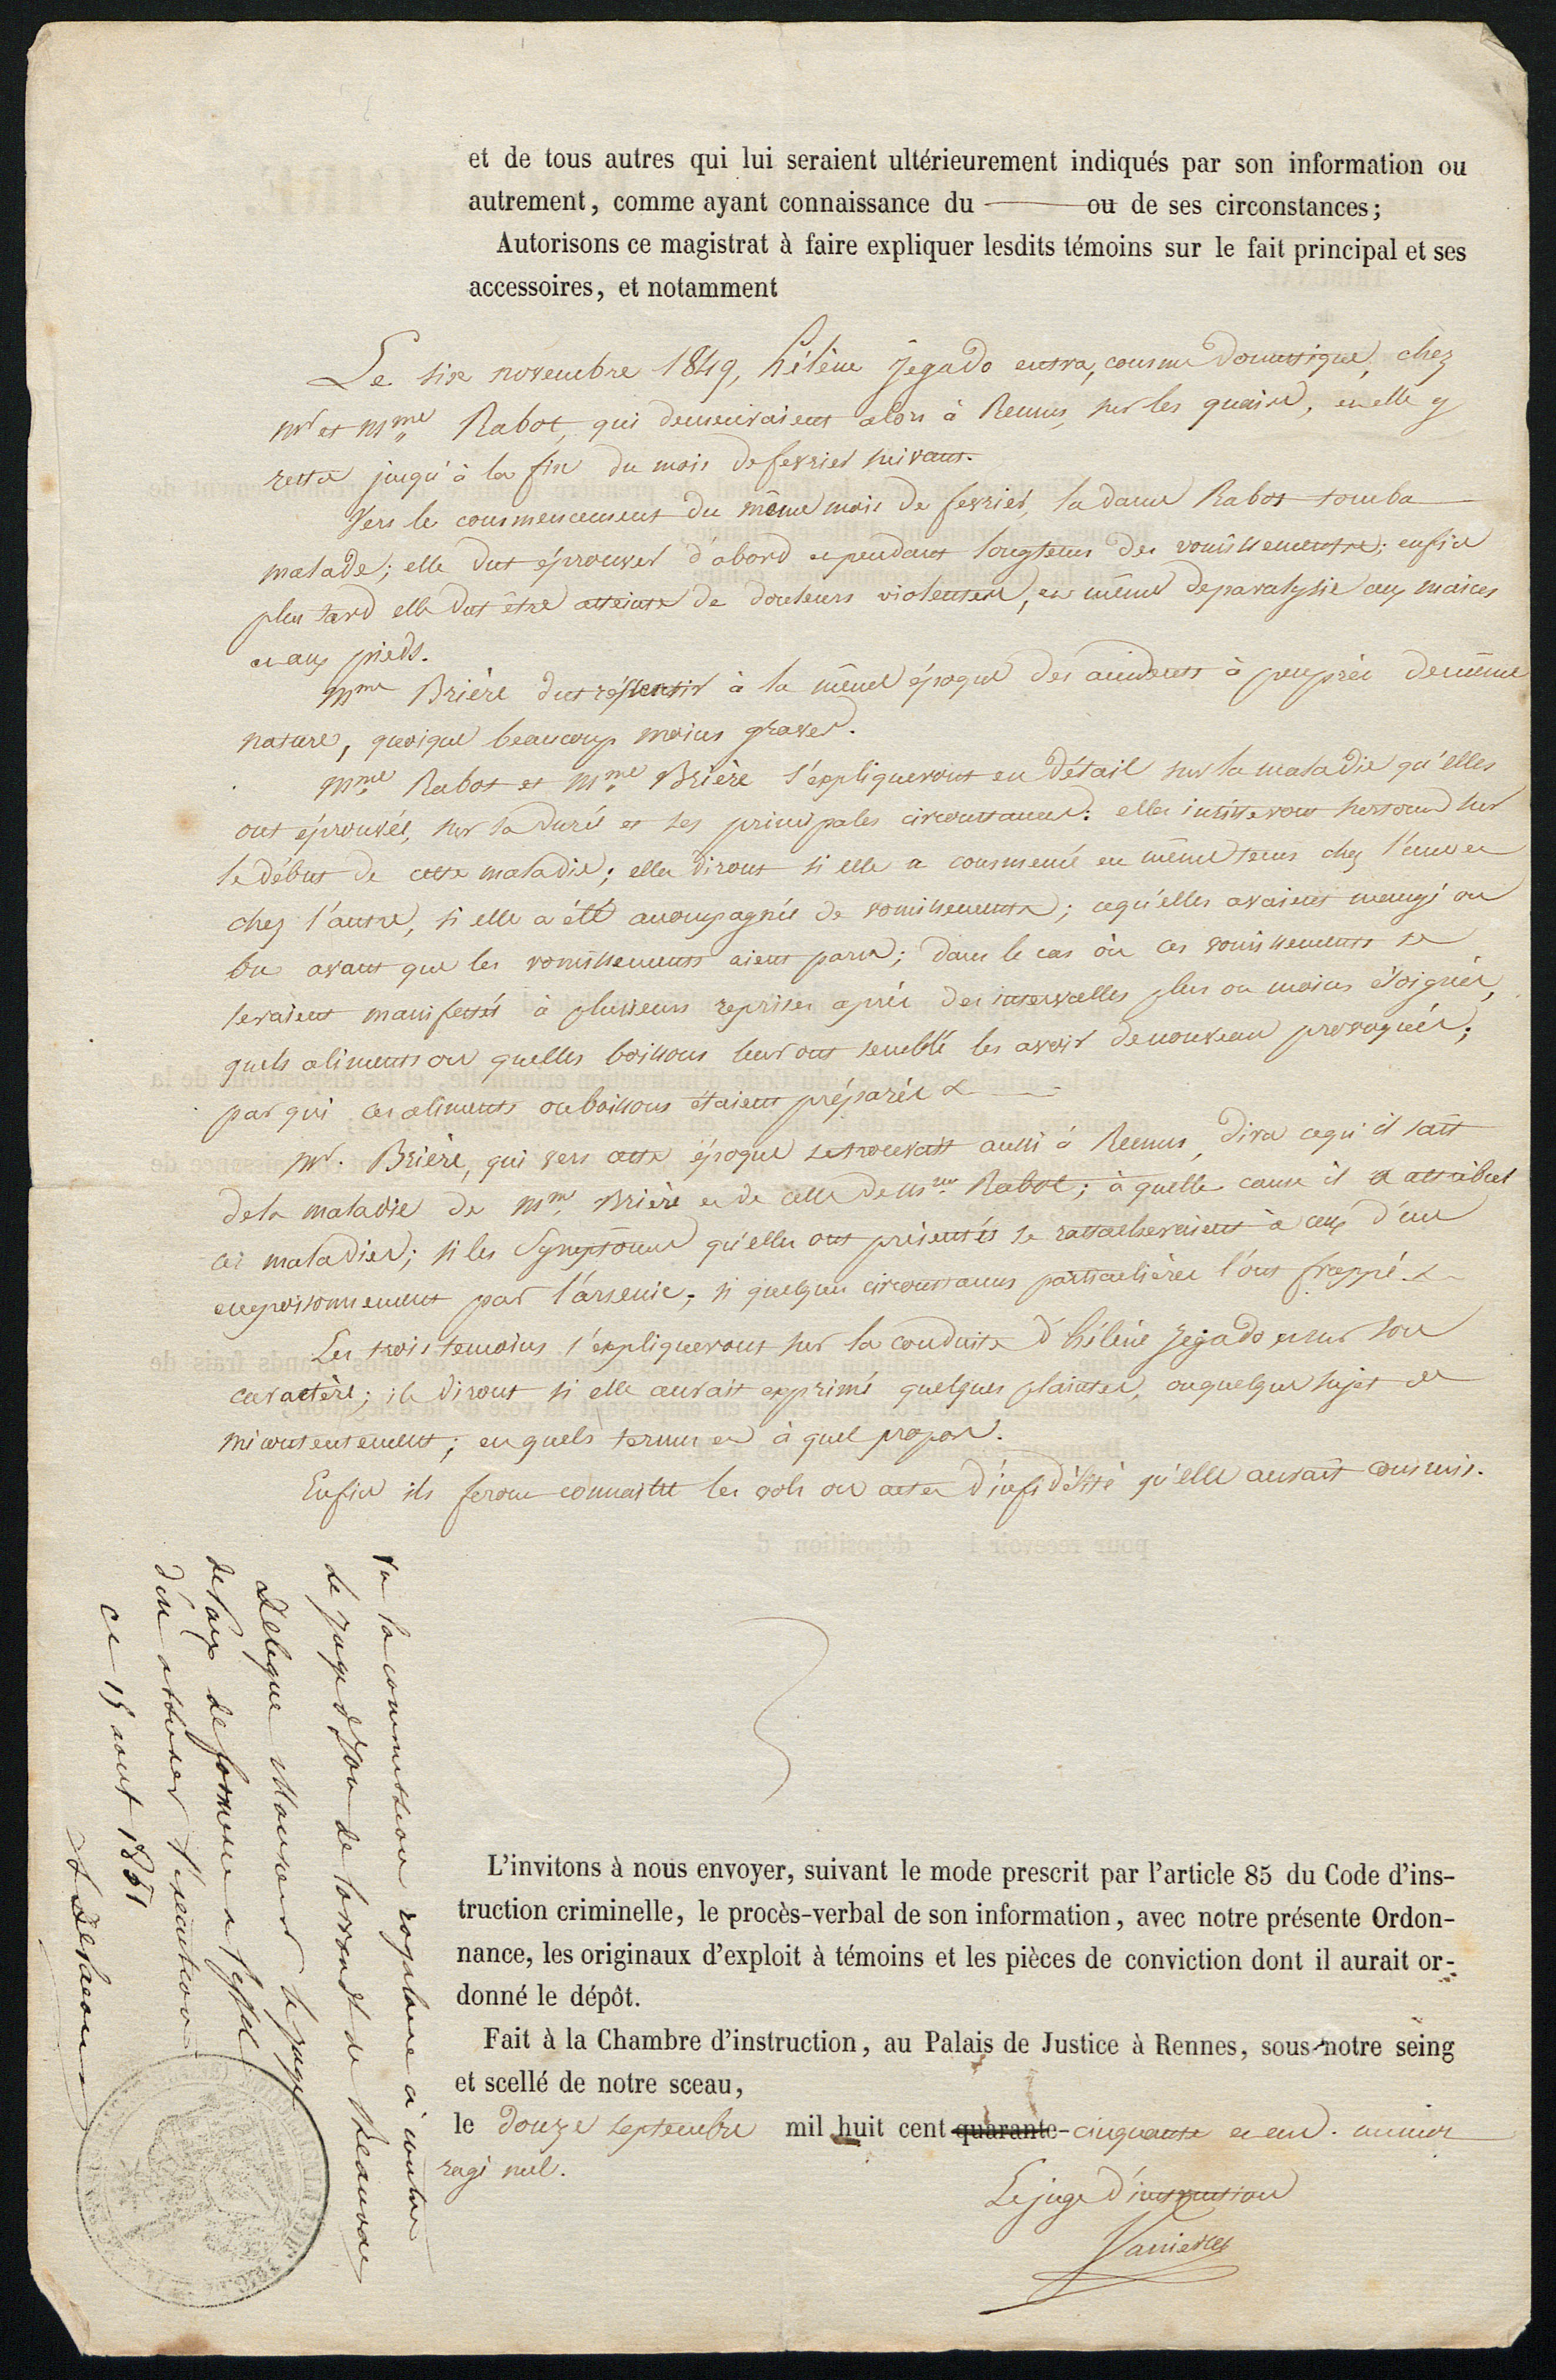 et de tous autres qui lui seraient ultérieurement indiqués par son information ou
autrement, comme ayant connaissance du ——— ou de ses circonstances;
Autorisons ce magistrat à faire expliquer lesdits témoins sur le fait principal et ses
accessoires, et notamment
Le six novembre 1849, hélène Jegado entra, comme domestique, chez
mr et mme Rabot, qui demeuraient alors à Rennes, sur les quaix, et elle y
resta jusqu'à la fin du mois de fevrier suivant.
Vers le commencement du même mois de fevrier, la dame Rabot tomba
malade; elle dut éprouver d'abord et pendant longtems des vomissements; enfin
plus tard elle dut être atteinte de douleurs violentes, et même de paralysie aux mains
et aux pieds.
Mme Brière dut ressentir à la même époque des accidents à peu près de même
nature, quoique beaucoup moins graves.
Mme Rabot et Mme Brière s'expliqueront en détail sur la maladie qu'elles
ont éprouvée, sur sa durée et ses principales circonstances: elles insisteront surtout sur
le début de cette maladie; elles diront si elle a commencé en même tems chez l'une et
chez l'autre, si elle a été accompagnée de vomissements; ce qu'elles avaient mangé ou
bu avant que les vomissements aient paru; dans le cas où ces vomissements se
seraient manifestés à plusieurs reprises après des intervalles plus ou moins éloignés,
quels aliments ou quelles boissons leur ont semblé les avoir de nouveau provoqués;
par qui ces aliments ou boissons étaient préparés &
mr. Brière, qui vers cette époque se trouvait aussi à Rennes, dira ce qu'il sait
de la maladie de Mme Brière et de celle de Mme Rabot; à quelle cause il a attribué
ces maladies; si les symptômes qu'elles ont présentés se rattacheraient à ceux d'un
empoisonnement par l'arsenic; si quelques circonstances particulières l'ont frappé. &
Les trois temoins s'expliqueront sur la conduite d'hélène Jegado et sur son
caractère; ils diront si elle aurait exprimé quelques plaintes, ou quelque sujet de
mécontentement; en quels termes et à quel propos.
Enfin ils feront connaitre les vols ou actes d'infidélité qu'elle aurait commis.
Vu la commission rogatoire ci contre
le juge d'Ion de
délègue Monsieur le juge
de Paix de
d'en l'execution
ce 15 aout 1851
L'invitons à nous envoyer, suivant le mode prescrit par l'article 85 du Code d'ins-
truction criminelle, le procès-verbal de son information, avec notre présente Ordon-
nance, les originaux d'exploit à témoins et les pièces de conviction dont il aurait or-
donné le dépôt.
Fait à la Chambre d'instruction, au Palais de Justice à Rennes, sous notre seing
et scellé de notre sceau,
le douze septembre mil huit cent quarante-cinquante et un.
nul.
Le juge d'instruction